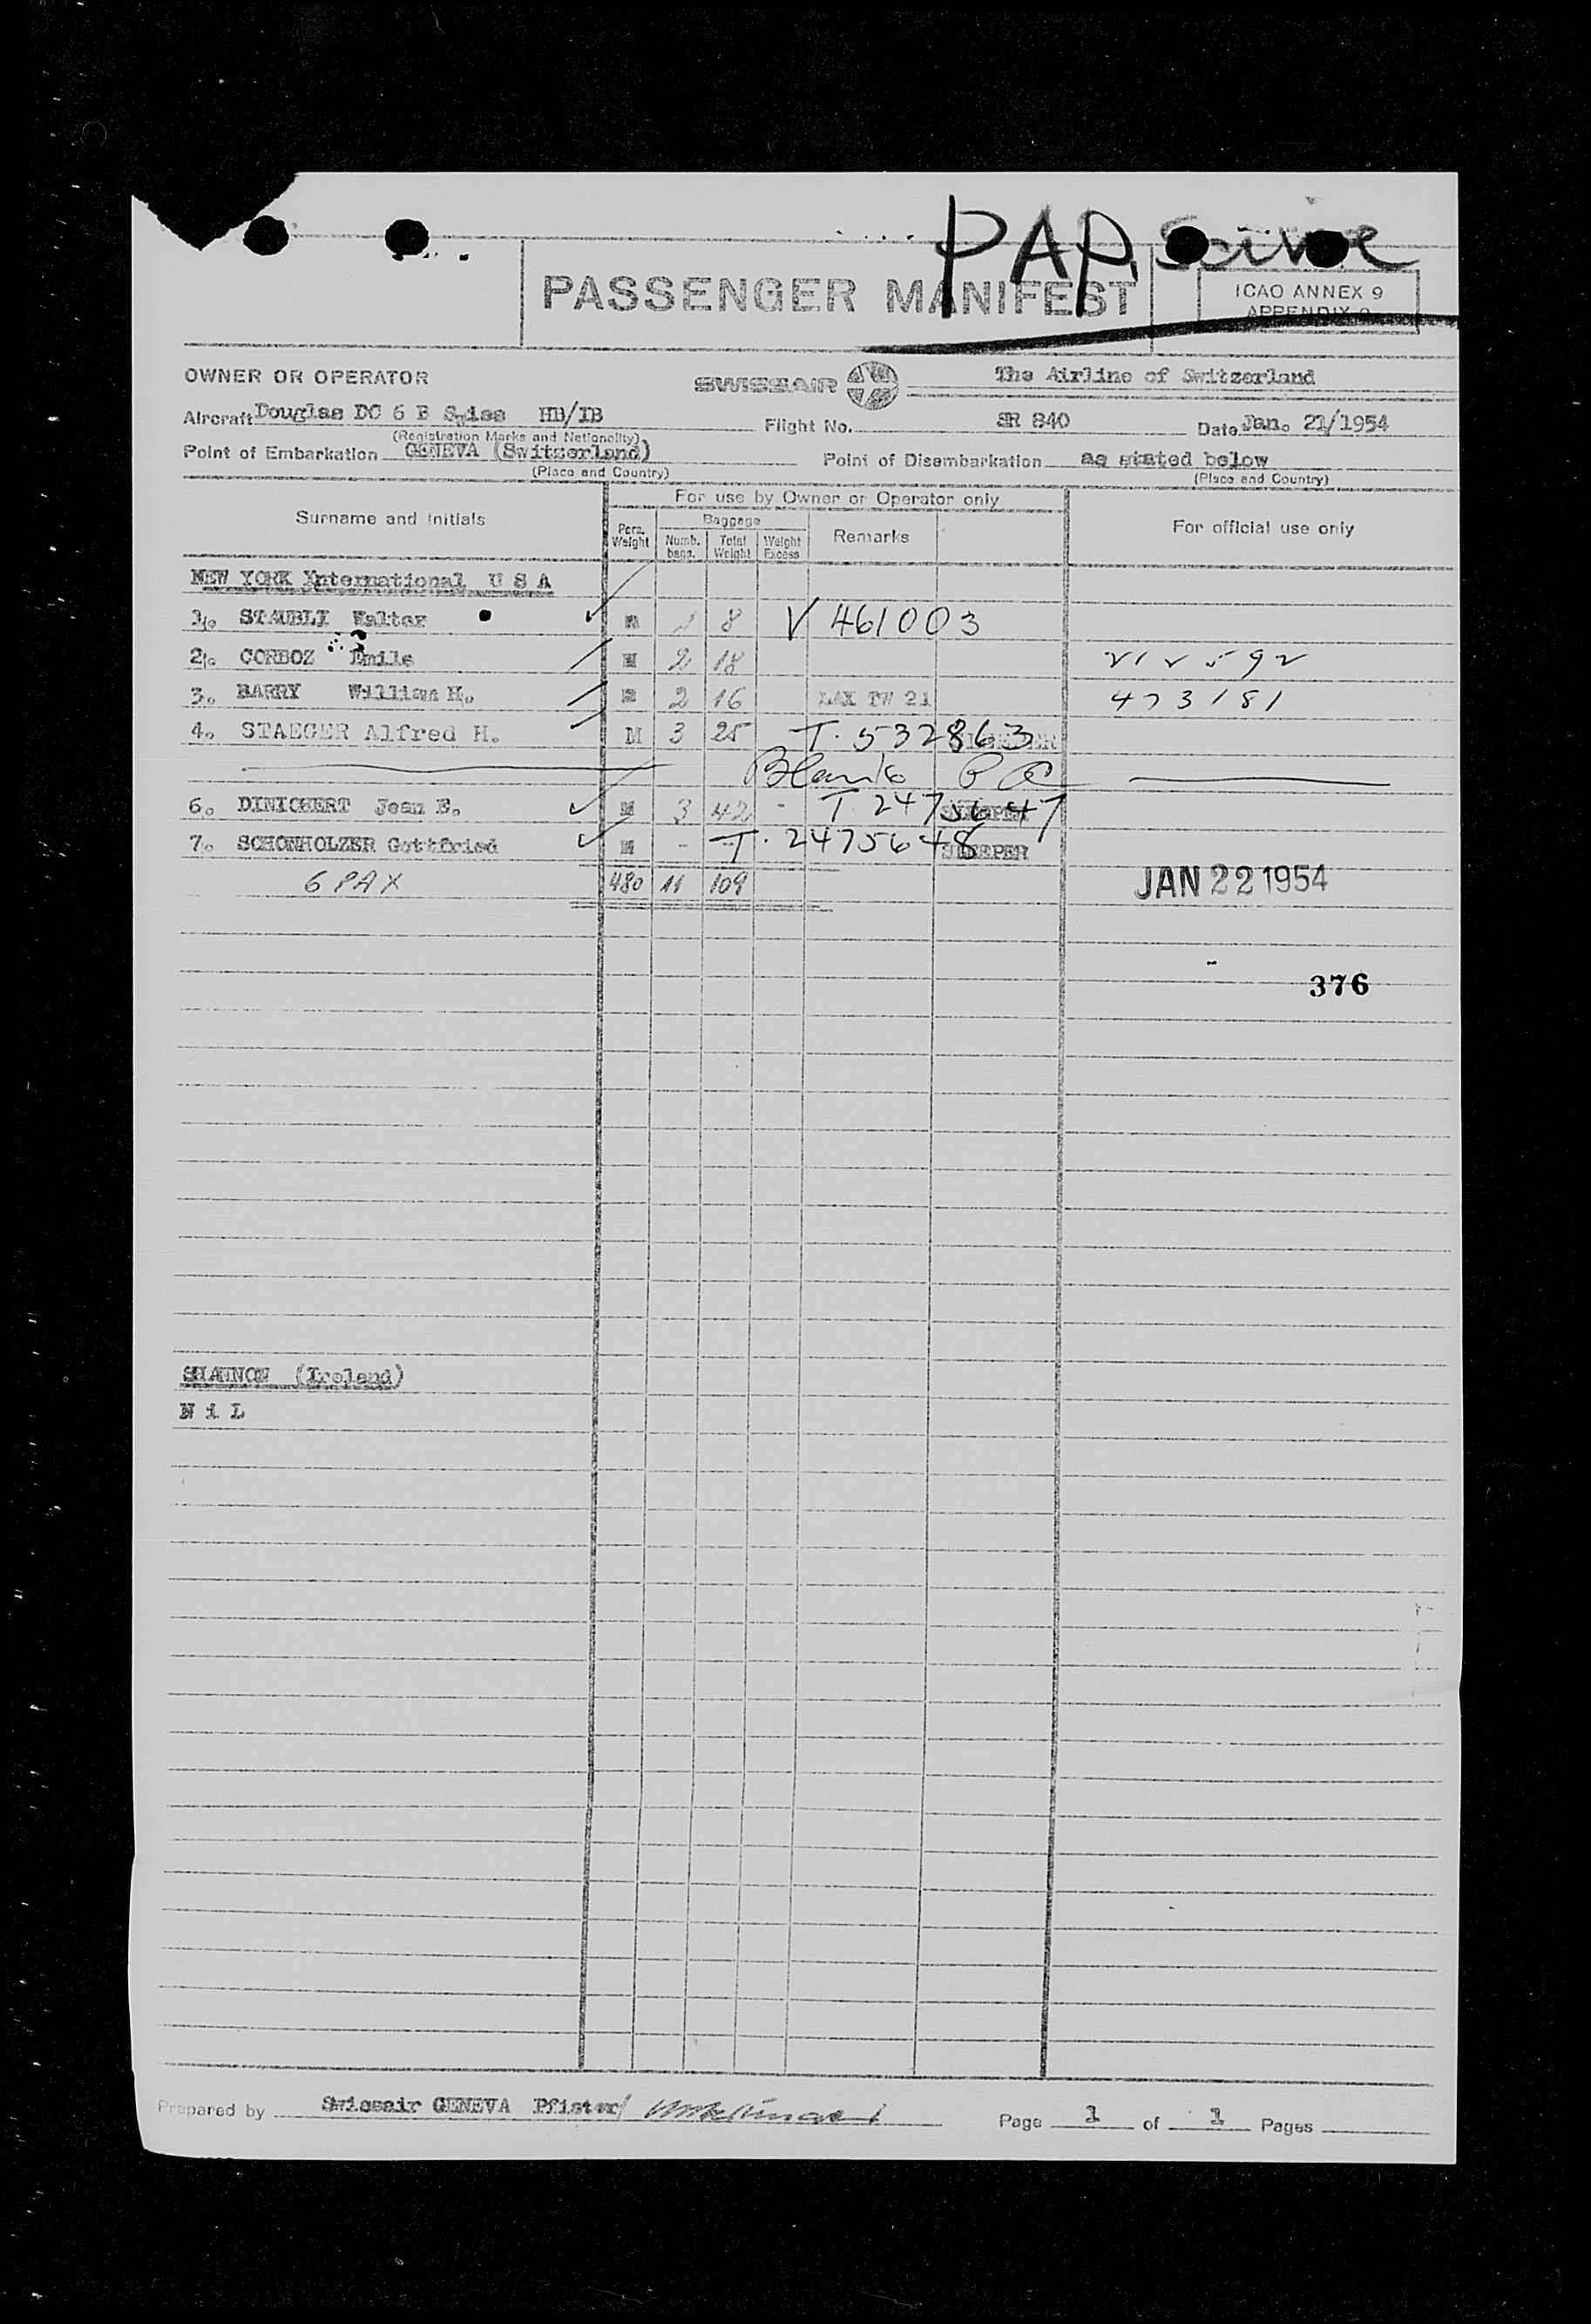 PAP,
PASSENGER MANIFEST
ICAO ANNEX 9
APPENDIX 2
OWNER OR OPERATOR SWISSAIR The Airline of Switzerland
Aircraft Douglas DC 6 B Swiss HB/IB Flight No. SR 840 Date Jan. 21/1954
(Registration Marks and Nationality)
Point of Embarkation GENEVA (Switzerland) Point of Disembarkation as stated below
(Place and Country) (Place and Country)
For use by Owner or Operator only
Surname and Initials Pers. Weight Baggage Numb. bags. Total Weight Weight Excess Remarks For official use only
NEW YORK International U S A
1. STAUBLI Walter M 1 8 V 461003
2. CORBOZ Emile M 2 18 212592
3. BARRY William H. M 2 16 LAX TW 21 473181
4. STAEGER Alfred H. M 3 25 T. 532863
Blank
6. DINICHERT Jean E. M 3 42 - T. 2475647 SLEEPER
7. SCHONHOLZER Gottfried M - - T. 2475648 SLEEPER
6 PAX 480 11 109
JAN 22 1954
376
SHANNON (Ireland)
N i L
Prepared by Swissair GENEVA Pfister/ Page 1 of 1 Pages